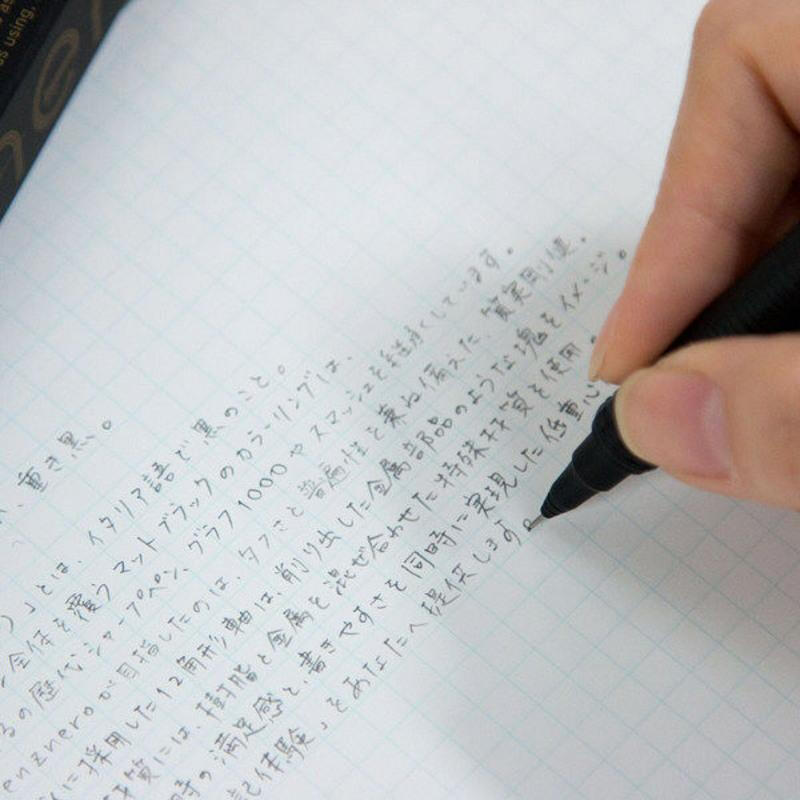 重き黒。
」とは、イタリア語で黒のこと。
全体を覆うマットブラックのカラーリングは、
の歴代シャープペン、グラフ1000やスマッシュを継承しています。
enzneroが目指したのは、タフさと普遍性を兼ね備えた、質実剛健。
に採用した12角形軸は、削り出した金属部品のような塊をイメージ。
材質には、樹脂と金属を混ぜ合わせた特殊材質を使用。
時の満足感と、書きやすさを同時に実現した低重心
記体験」をあなたへ提供します。
ss using,
ner